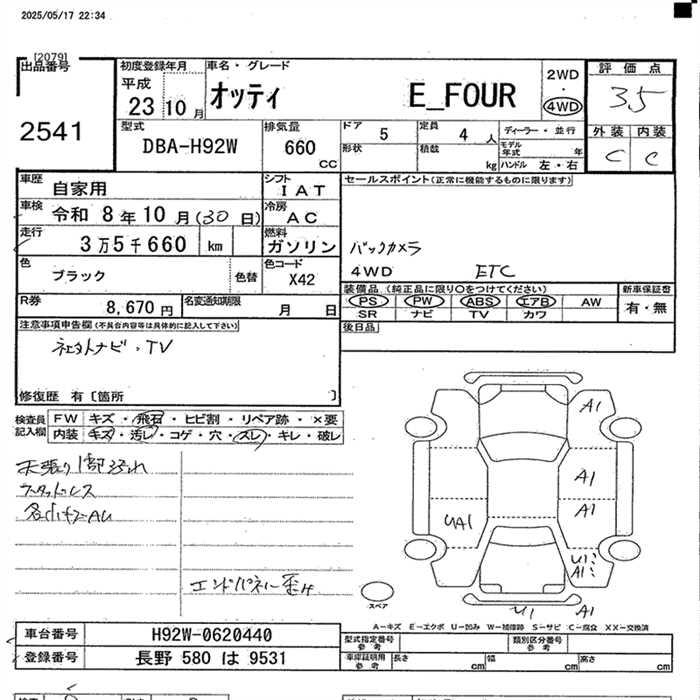 2025/05/17 22:34
[2079]
出品番号
2541
初度登録年月
平成
23 10 月
車名・グレード
オッティ E_FOUR
2WD
・
4WD
評価点
3.5
外装 内装
C C
型式
DBA-H92W
排気量
660
CC
ドア 5
定員 4 人
形状
積載 kg
ディーラー・並行
モデル年式 年
ハンドル 左・右
車歴
自家用
シフト
IAT
車検
令和 8 年 10 月 (30 日)
冷房
AC
走行
3万5千660 km
燃料
ガソリン
色
ブラック
色替
色コード
X42
セールスポイント(正常に機能するものに限ります)
バックカメラ
4WD ETC
R券
8,670 円
名変通知期限
月 日
装備品(純正品に限り○をつけてください)
PS PW ABS エアB AW
SR ナビ TV カワ
新車保証書
有・無
後日品
注意事項申告欄(不具合内容等は具体的に記入して下さい)
ネエタトナビ・TV
修復歴 有〔箇所 〕
検査員
記入欄
FW キズ・飛石・ヒビ割・リペア跡・×要
内装 キズ・汚レ・コゲ・穴・スレ・キレ・破レ
天張り1部汚れ
スタッドレス
各小キズAU
エンドパネル歪み
A1
A1
A1
UA1
U1
A1
U1 A1
スペア
A-キズ E-エクボ U-凹み W-補修跡 S-サビ C-腐食 XX-交換済
車台番号
H92W-0620440
登録番号
長野 580 は 9531
型式指定番号
参考
類別区分番号
参考
車庫証明用
参考
長さ cm 幅 cm 高さ cm